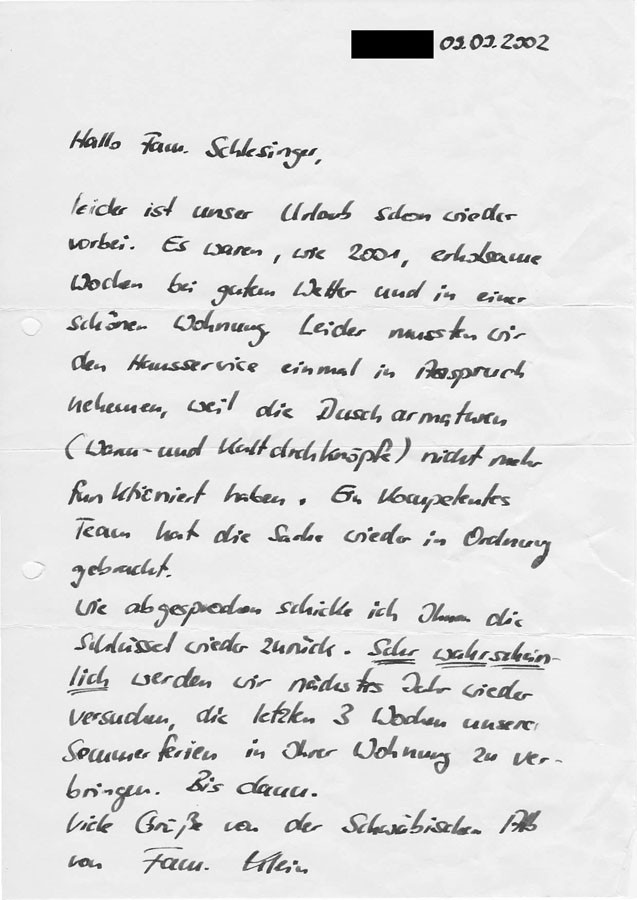 09.09.2002
Hallo Fam. Schlesinger,
leider ist unser Urlaub schon wieder
vorbei. Es waren, wie 2001, erholsame
Wochen bei gutem Wetter und in einer
schönen Wohnung. Leider mussten wir
den Hausservice einmal in Anspruch
nehemen, weil die Duscharmaturen
(Warm- und Kaltdrehknöpfe) nicht mehr
funktioniert haben. Ein kompetentes
Team hat die Sache wieder in Ordnung
gebracht.
Wie abgesprochen schicke ich Ihnen die
Schlüssel wieder zurück. Sehr wahrschein-
lich werden wir nächstes Jahr wieder
versuchen, die letzten 3 Wochen unserer
Sommerferien in Ihrer Wohnung zu ver-
bringen. Bis dann.
Viele Grüße von der Schwäbischen Alb
von Fam. Klein